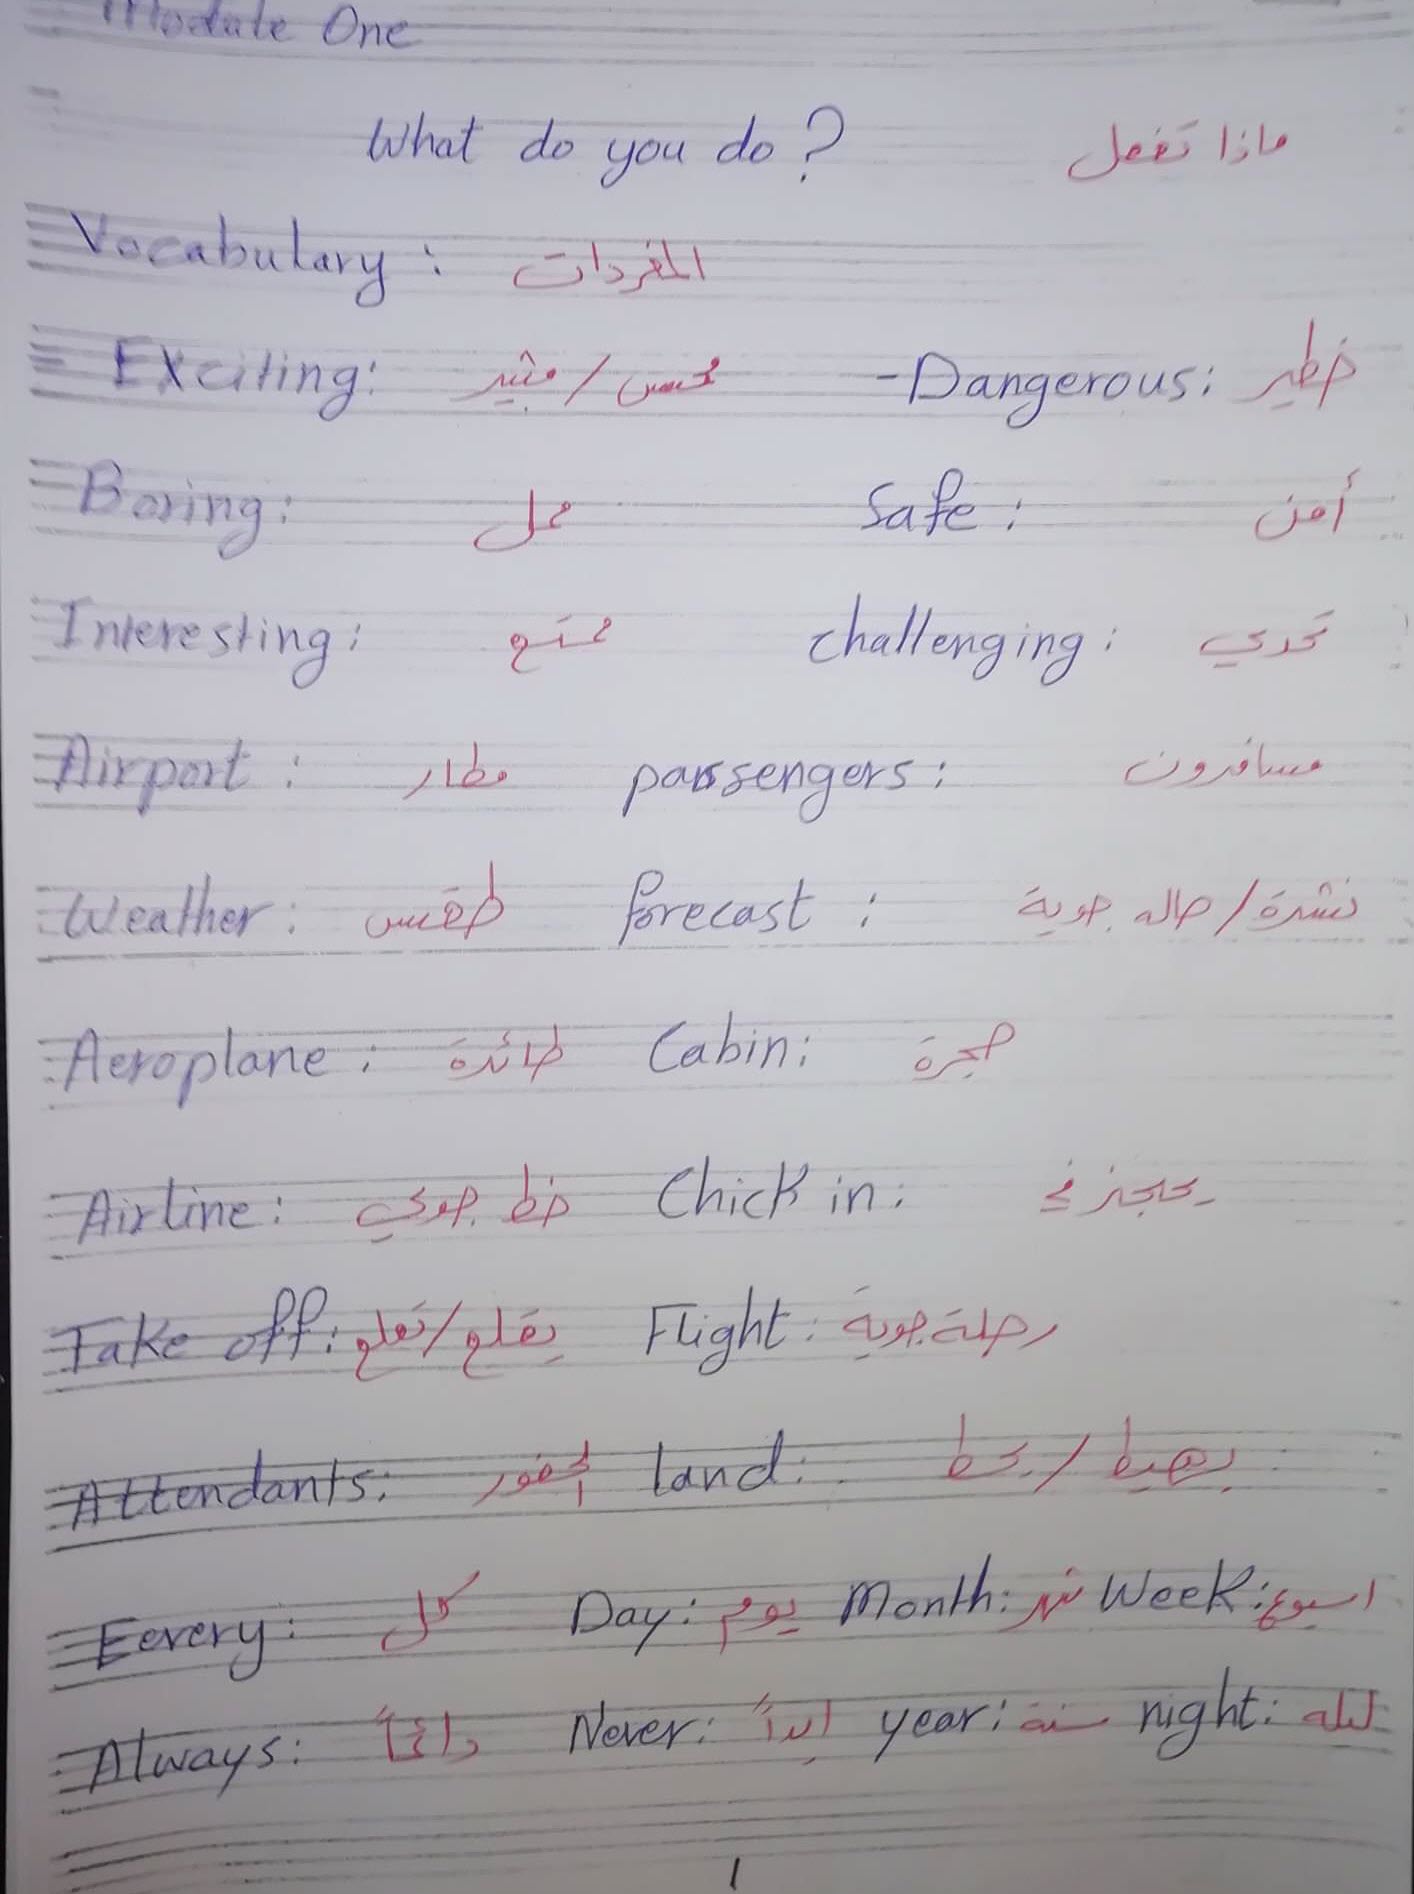 Module One
What do you do? ماذا تفعل
Vocabulary: المفردات
Exciting: محمس / مثير - Dangerous: خطير
Boring: ممل Safe: أمن
Interesting: ممتع challenging: تحدي
Airport: مطار passengers: مسافرون
Weather: طقس forecast: نشرة / حاله جوية
Aeroplane: طائرة Cabin: حجرة
Airline: خط جوي Chick in: يحجز في
Take off: يقلع / تقلع Flight: رحلة جوية
Attendants: الحضور land: يهبط / يحط
Eevery: كل Day: يوم Month: شهر Week: اسبوع
Always: دائماً Never: ابداً year: سنة night: ليله
1